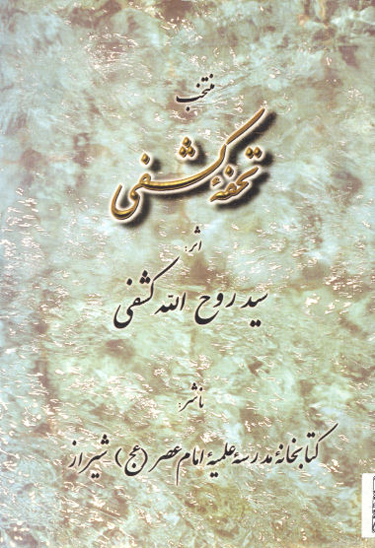 منتخب
تحفهٔ کشفی
اثر:
سید روح الله کشفی
ناشر:
کتابخانهٔ مدرسه علمیهٔ امام عصر (عج) شیراز